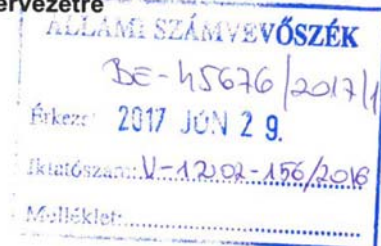 ervezetre
ÁLLAMI SZÁMVEVŐSZÉK
BE-45676/2017/1
Érkezett: 2017 JÚN 29.
Iktatószám: V-1202-156/2016
Melléklet: